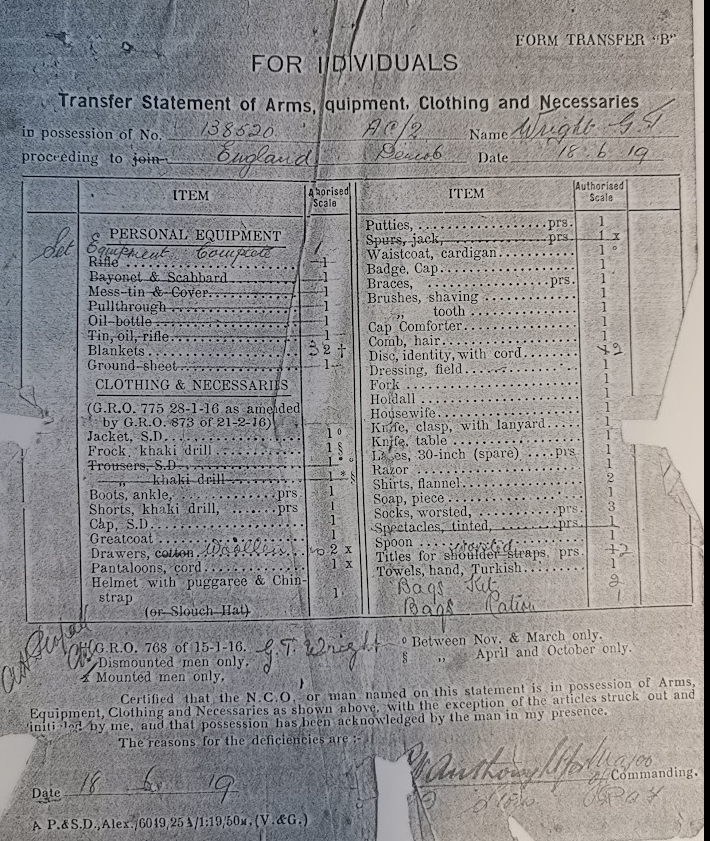 FORM TRANSFER "B"
FOR I DIVIDUALS
Transfer Statement of Arms, quipment, Clothing and Necessaries
in possession of No. 138520 AC/2 Name Wright G.T
proceeding to join England Demob Date 18.6.19
ITEM A horised Scale
PERSONAL EQUIPMENT
Set Equipment Complete 1
Rifle 1
Bayonet & Scabbard 1
Mess-tin & Cover 1
Pullthrough 1
Oil-bottle 1
Tin, oil, rifle 1
Blankets 3 2 †
Ground-sheet 1
CLOTHING & NECESSARIES
(G.R.O. 775 28-1-16 as amended
by G.R.O. 873 of 21-2-16)
Jacket, S.D. 1 °
Frock, khaki drill 1 §
Trousers, S.D. 1 * °
„ khaki drill 1 * §
Boots, ankle, prs 1
Shorts, khaki drill, prs 1
Cap, S.D. 1
Greatcoat 1
Drawers, cotton Woollen 2 x
Pantaloons, cord 1 x
Helmet with puggaree & Chin-
strap 1
(or Slouch Hat)
ITEM Authorised Scale
Putties, prs. 1
Spurs, jack, prs 1 x
Waistcoat, cardigan 1 °
Badge, Cap 1
Braces, prs. 1
Brushes, shaving 1
„ tooth 1
Cap Comforter 1
Comb, hair 1
Disc, identity, with cord 1 2
Dressing, field 1
Fork 1
Holdall 1
Housewife 1
Knife, clasp, with lanyard 1
Knife, table 1
Laces, 30-inch (spare) prs 1
Razor 1
Shirts, flannel 2
Soap, piece 1
Socks, worsted, prs. 3
Spectacles, tinted, prs. 1
Spoon 1
Titles for shoulder straps, worsted prs 2
Towels, hand, Turkish 1
Bags Kit 2
Bags Ration 1
G.R.O. 768 of 15-1-16. G.T. Wright ° Between Nov. & March only.
Dismounted men only. § „ April and October only.
x Mounted men only.
Certified that the N.C.O. or man named on this statement is in possession of Arms,
Equipment, Clothing and Necessaries as shown above, with the exception of the articles struck out and
initi led by me, and that possession has been acknowledged by the man in my presence.
The reasons for the deficiencies are :-
Anthony for Major
Commanding.
Date 18 6 19
A P.&S.D., Alex./6019,25 /1:19/50м. (V.&G.)